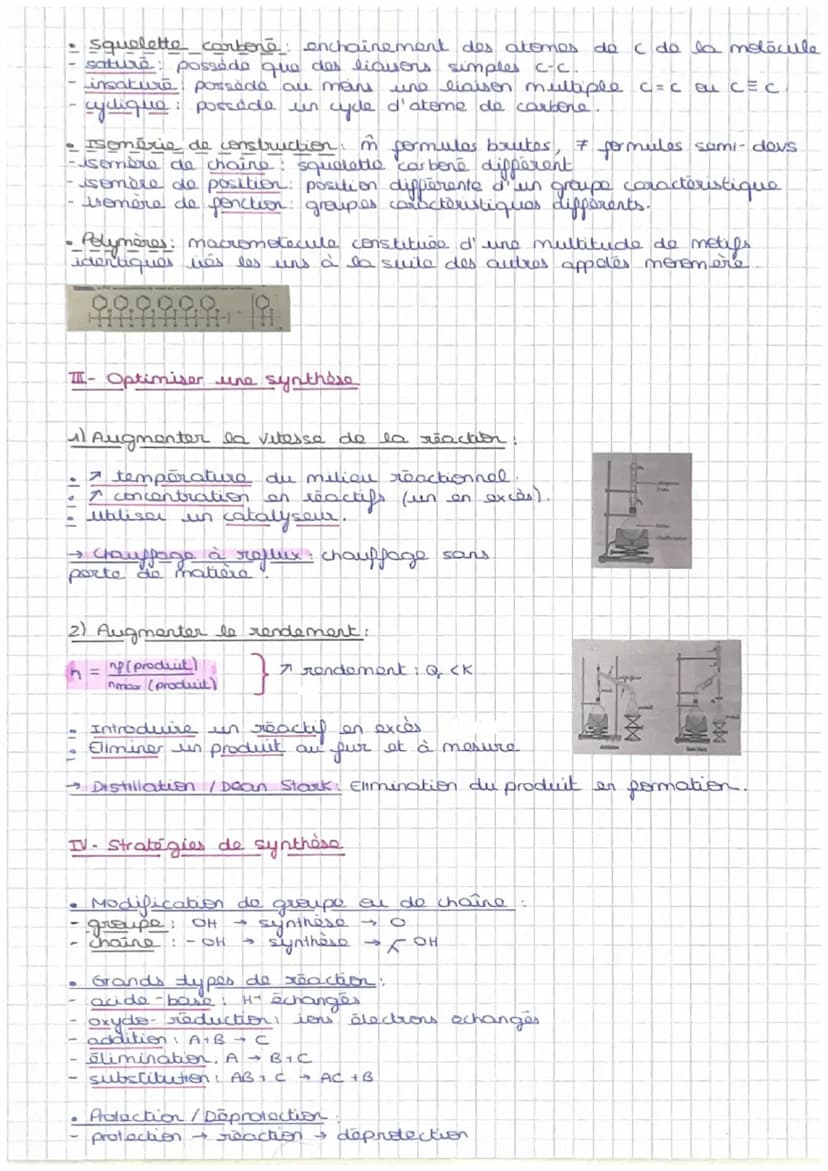 • Squelette carboné : enchainement des atomes de C de la molécule
- saturé : possède que des liaisons simples C-C.
- insaturé : possède au moins une liaison multiple C=C ou C≡C.
- cyclique : possède un cycle d'atome de carbone.
• Isomérie de construction : m̂ formules brutes, ≠ formules semi-devs
- isomère de chaîne : squelette carboné différent
- isomère de position : position différente d'un groupe caractéristique
- isomère de fonction : groupes caractéristiques différents.
• Polymères : macromolécule constituée d'une multitude de motifs
identiques liés les uns à la suite des autres appelés monomère.
III- Optimiser une synthèse
1) Augmenter la vitesse de la réaction :
• ↗ température du milieu réactionnel.
• ↗ concentration en réactifs (un en excès).
• utiliser un catalyseur.
→ Chauffage à reflux : chauffage sans
perte de matière.
2) Augmenter le rendement :
η = np(produit) / nmax(produit) } ↗ rendement : Qr < K
• Introduire un réactif en excès
• Eliminer un produit au fur et à mesure
→ Distillation / Dean Stark : Elimination du produit en formation.
IV- Stratégies de synthèse
• Modification de groupe ou de chaîne :
- groupe : OH → synthèse → O
- chaîne : - OH → synthèse → OH
• Grands types de réaction :
- acide-base : H+ échangés
- oxydo-réduction : ions électrons échangés
- addition : A+B → C
- élimination : A → B+C
- substitution : AB + C → AC + B
• Protection / Déprotection :
- protection → réaction → déprotection